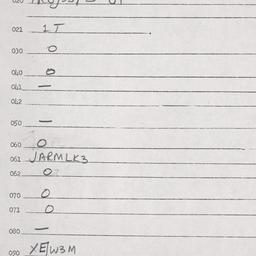 020
021 1T
030 0
040 0
041 —
042
050 —
060 0
061 JARMLK3
062 0
070 0
071 0
080 —
090 XEJW3M